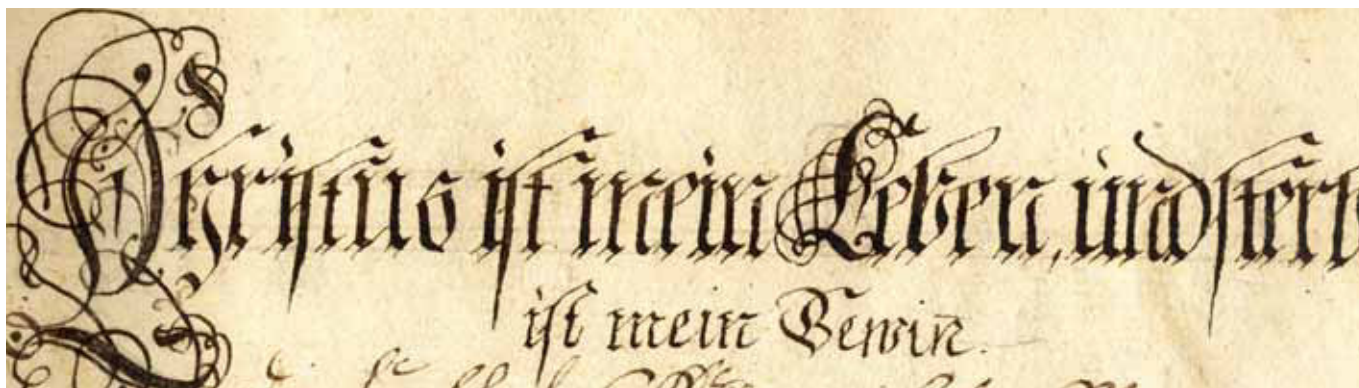 Christus ist mein Leben, und sterb
ist mein Gewin.